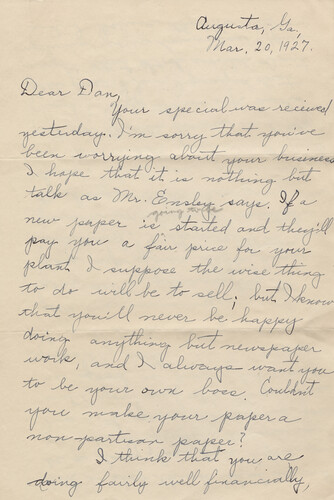 Augusta, Ga,
Mar. 20, 1927.
Dear Dan,
Your special was received
yesterday. I'm sorry that you've
been worrying about your business
I hope that it is nothing but
talk as Mr. Ensley says. If a
new paper is started and they'll
pay you a fair price for your
plant I suppose the wise thing
to do will be to sell; but I know
that you'll never be happy
doing anything but newspaper
work, and I always want you
to be your own boss. Couldn't
you make your paper a
non-partisan paper?
I think that you are
doing fairly well financially,